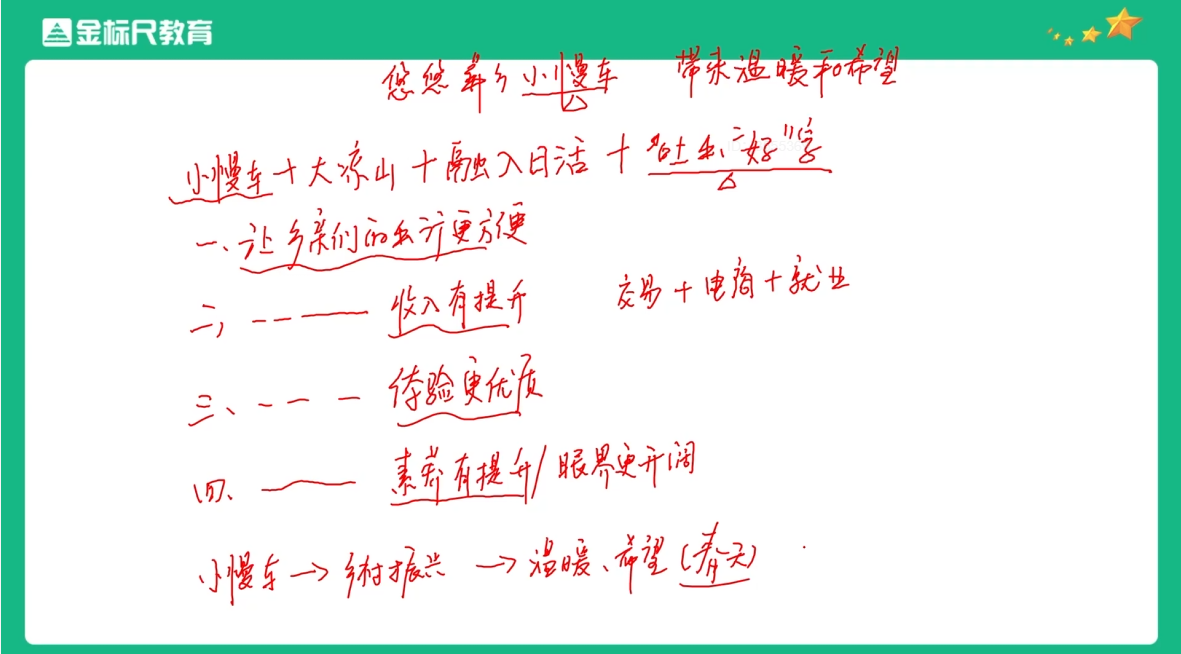 金标尺教育
悠悠彝乡小慢车 带来温暖和希望
小慢车+大凉山+融入日活+"吐出"好"字
一、让乡亲们的出行更方便
二、---- 收入有提升 交易+电商+就业
三、--- 体验更优质
四、—— 素养有提升/眼界更开阔
小慢车→乡村振兴→温暖、希望(春天)